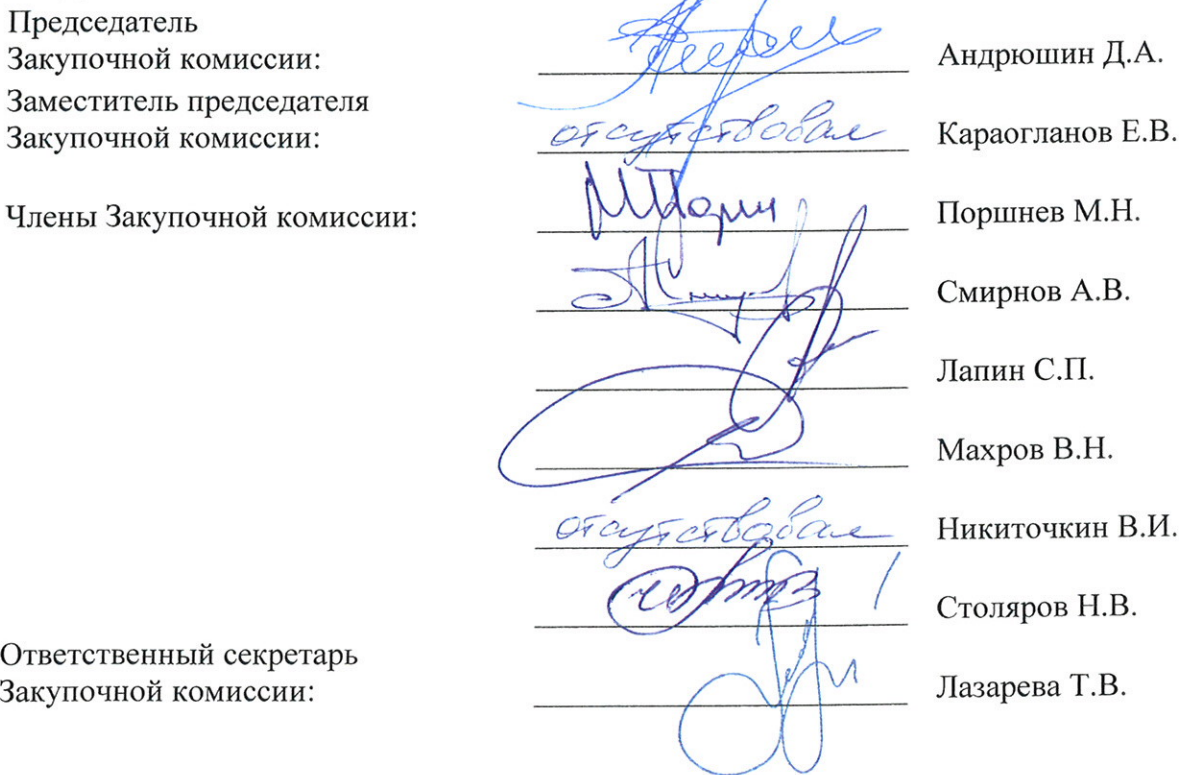 Председатель
Закупочной комиссии: Андрюшин Д.А.
Заместитель председателя
Закупочной комиссии: отсутствовал Караогланов Е.В.
Члены Закупочной комиссии: Поршнев М.Н.
Смирнов А.В.
Лапин С.П.
Махров В.Н.
отсутствовал Никиточкин В.И.
Столяров Н.В.
Ответственный секретарь
Закупочной комиссии: Лазарева Т.В.